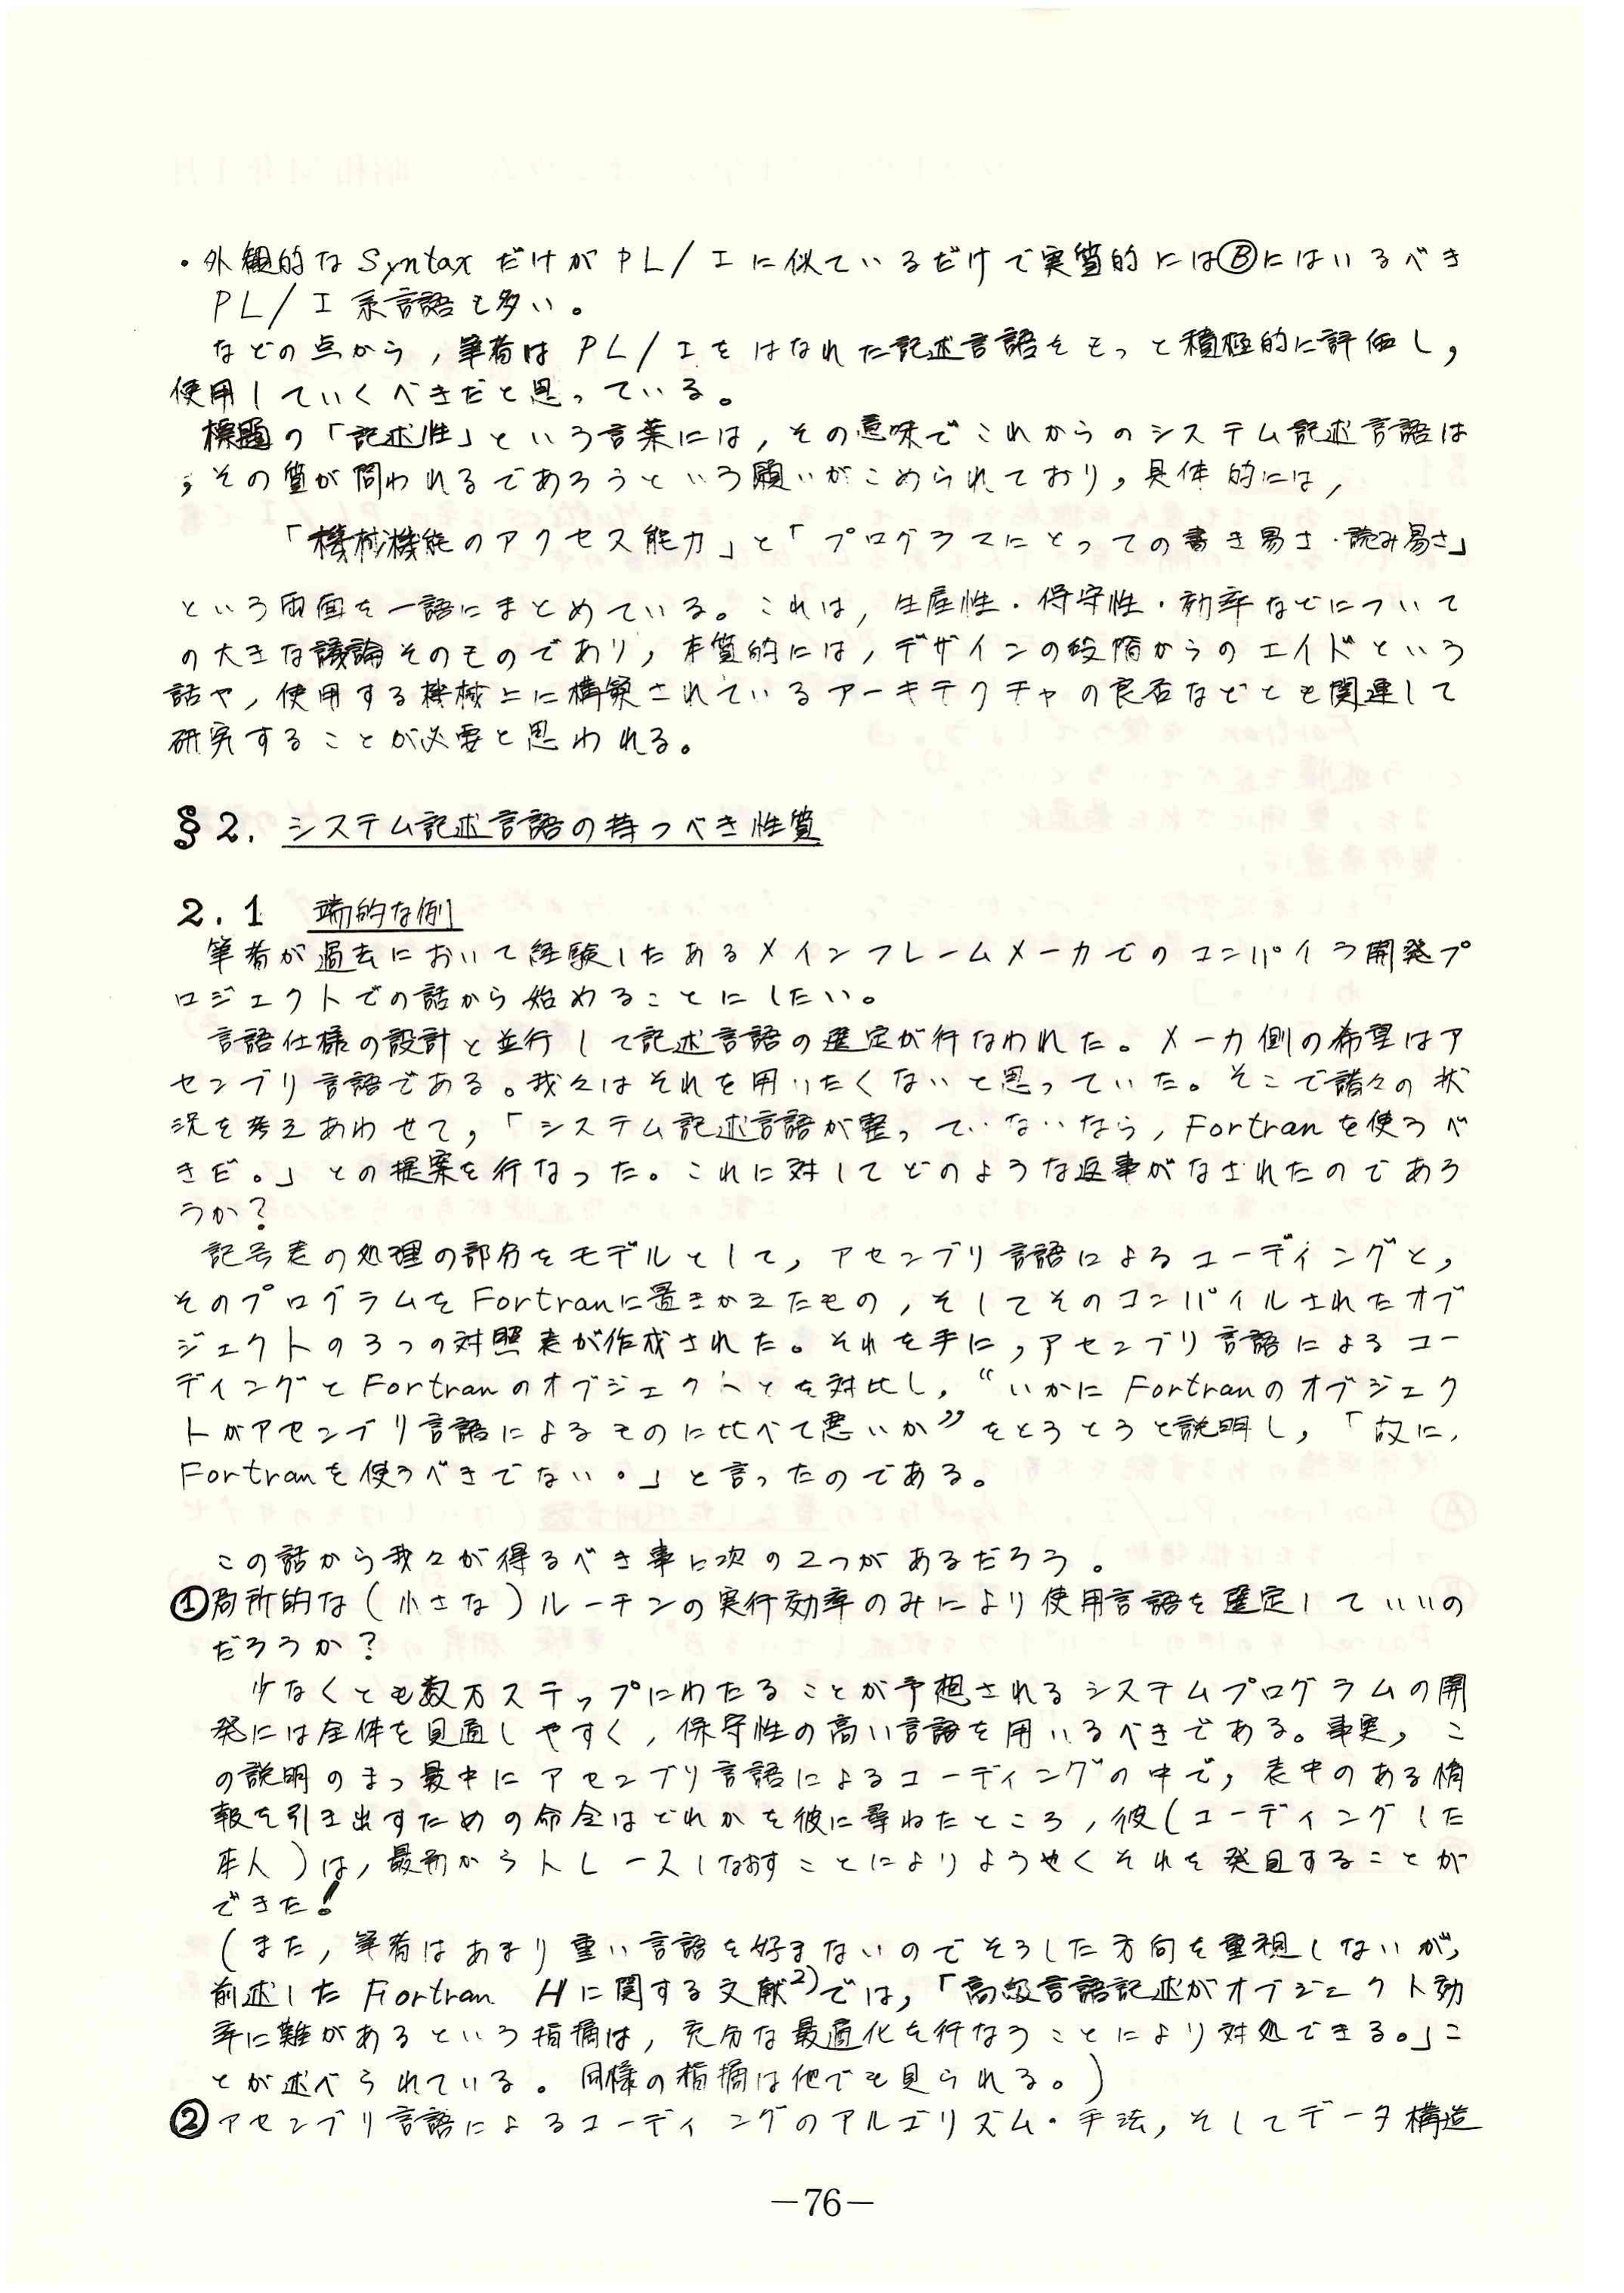 ・外観的なSyntaxだけがPL/Iに似ているだけで実質的にはⒷにはいるべき
PL/I系言語も多い。
などの点から,筆者はPL/Iをはなれた記述言語をもっと積極的に評価し,
使用していくべきだと思っている。
標題の「記述性」という言葉には,その意味でこれからのシステム記述言語は
,その質が問われるであろうという願いがこめられており,具体的には,
「機械機能のアクセス能力」と「プログラマにとっての書き易さ・読み易さ」
という両面を一語にまとめている。これは,生産性・保守性・効率などについて
の大きな議論そのものであり,本質的には,デザインの段階からのエイドという
話や,使用する機械上に構築されているアーキテクチャの良否などとも関連して
研究することが必要と思われる。
§2. システム記述言語の持つべき性質
2.1 端的な例
筆者が過去において経験したあるメインフレームメーカでのコンパイラ開発プ
ロジェクトでの話から始めることにしたい。
言語仕様の設計と並行して記述言語の選定が行なわれた。メーカ側の希望はア
センブリ言語である。我々はそれを用いたくないと思っていた。そこで諸々の状
況を考えあわせて,「システム記述言語が整っていないなら,Fortranを使うべ
きだ。」との提案を行なった。これに対してどのような返事がなされたのであろ
うか?
記号表の処理の部分をモデルとして,アセンブリ言語によるコーディングと,
そのプログラムをFortranに置きかえたもの,そしてそのコンパイルされたオブ
ジェクトの3つの対照表が作成された。それを手に,アセンブリ言語によるコー
ディングとFortranのオブジェクトとを対比し,“いかにFortranのオブジェク
トがアセンブリ言語によるものに比べて悪いか”をとうとうと説明し,「故に,
Fortranを使うべきでない。」と言ったのである。
この話から我々が得るべき事に次の2つがあるだろう。
①局所的な(小さな)ルーチンの実行効率のみにより使用言語を選定していいの
だろうか?
少なくとも数万ステップにわたることが予想されるシステムプログラムの開
発には全体を見通しやすく,保守性の高い言語を用いるべきである。事実,こ
の説明のまっ最中にアセンブリ言語によるコーディングの中で,表中のある情
報を引き出すための命令はどれかを彼に尋ねたところ,彼(コーディングした
本人)は,最初からトレースしなおすことによりようやくそれを発見することが
できた!
(また,筆者はあまり重い言語を好まないのでそうした方向を重視しないが,
前述したFortran Hに関する文献2)では,「高級言語記述がオブジェクト効
率に難があるという指摘は,充分な最適化を行なうことにより対処できる。」こ
とが述べられている。同様の指摘は他でも見られる。)
②アセンブリ言語によるコーディングのアルゴリズム・手法,そしてデータ構造
—76—